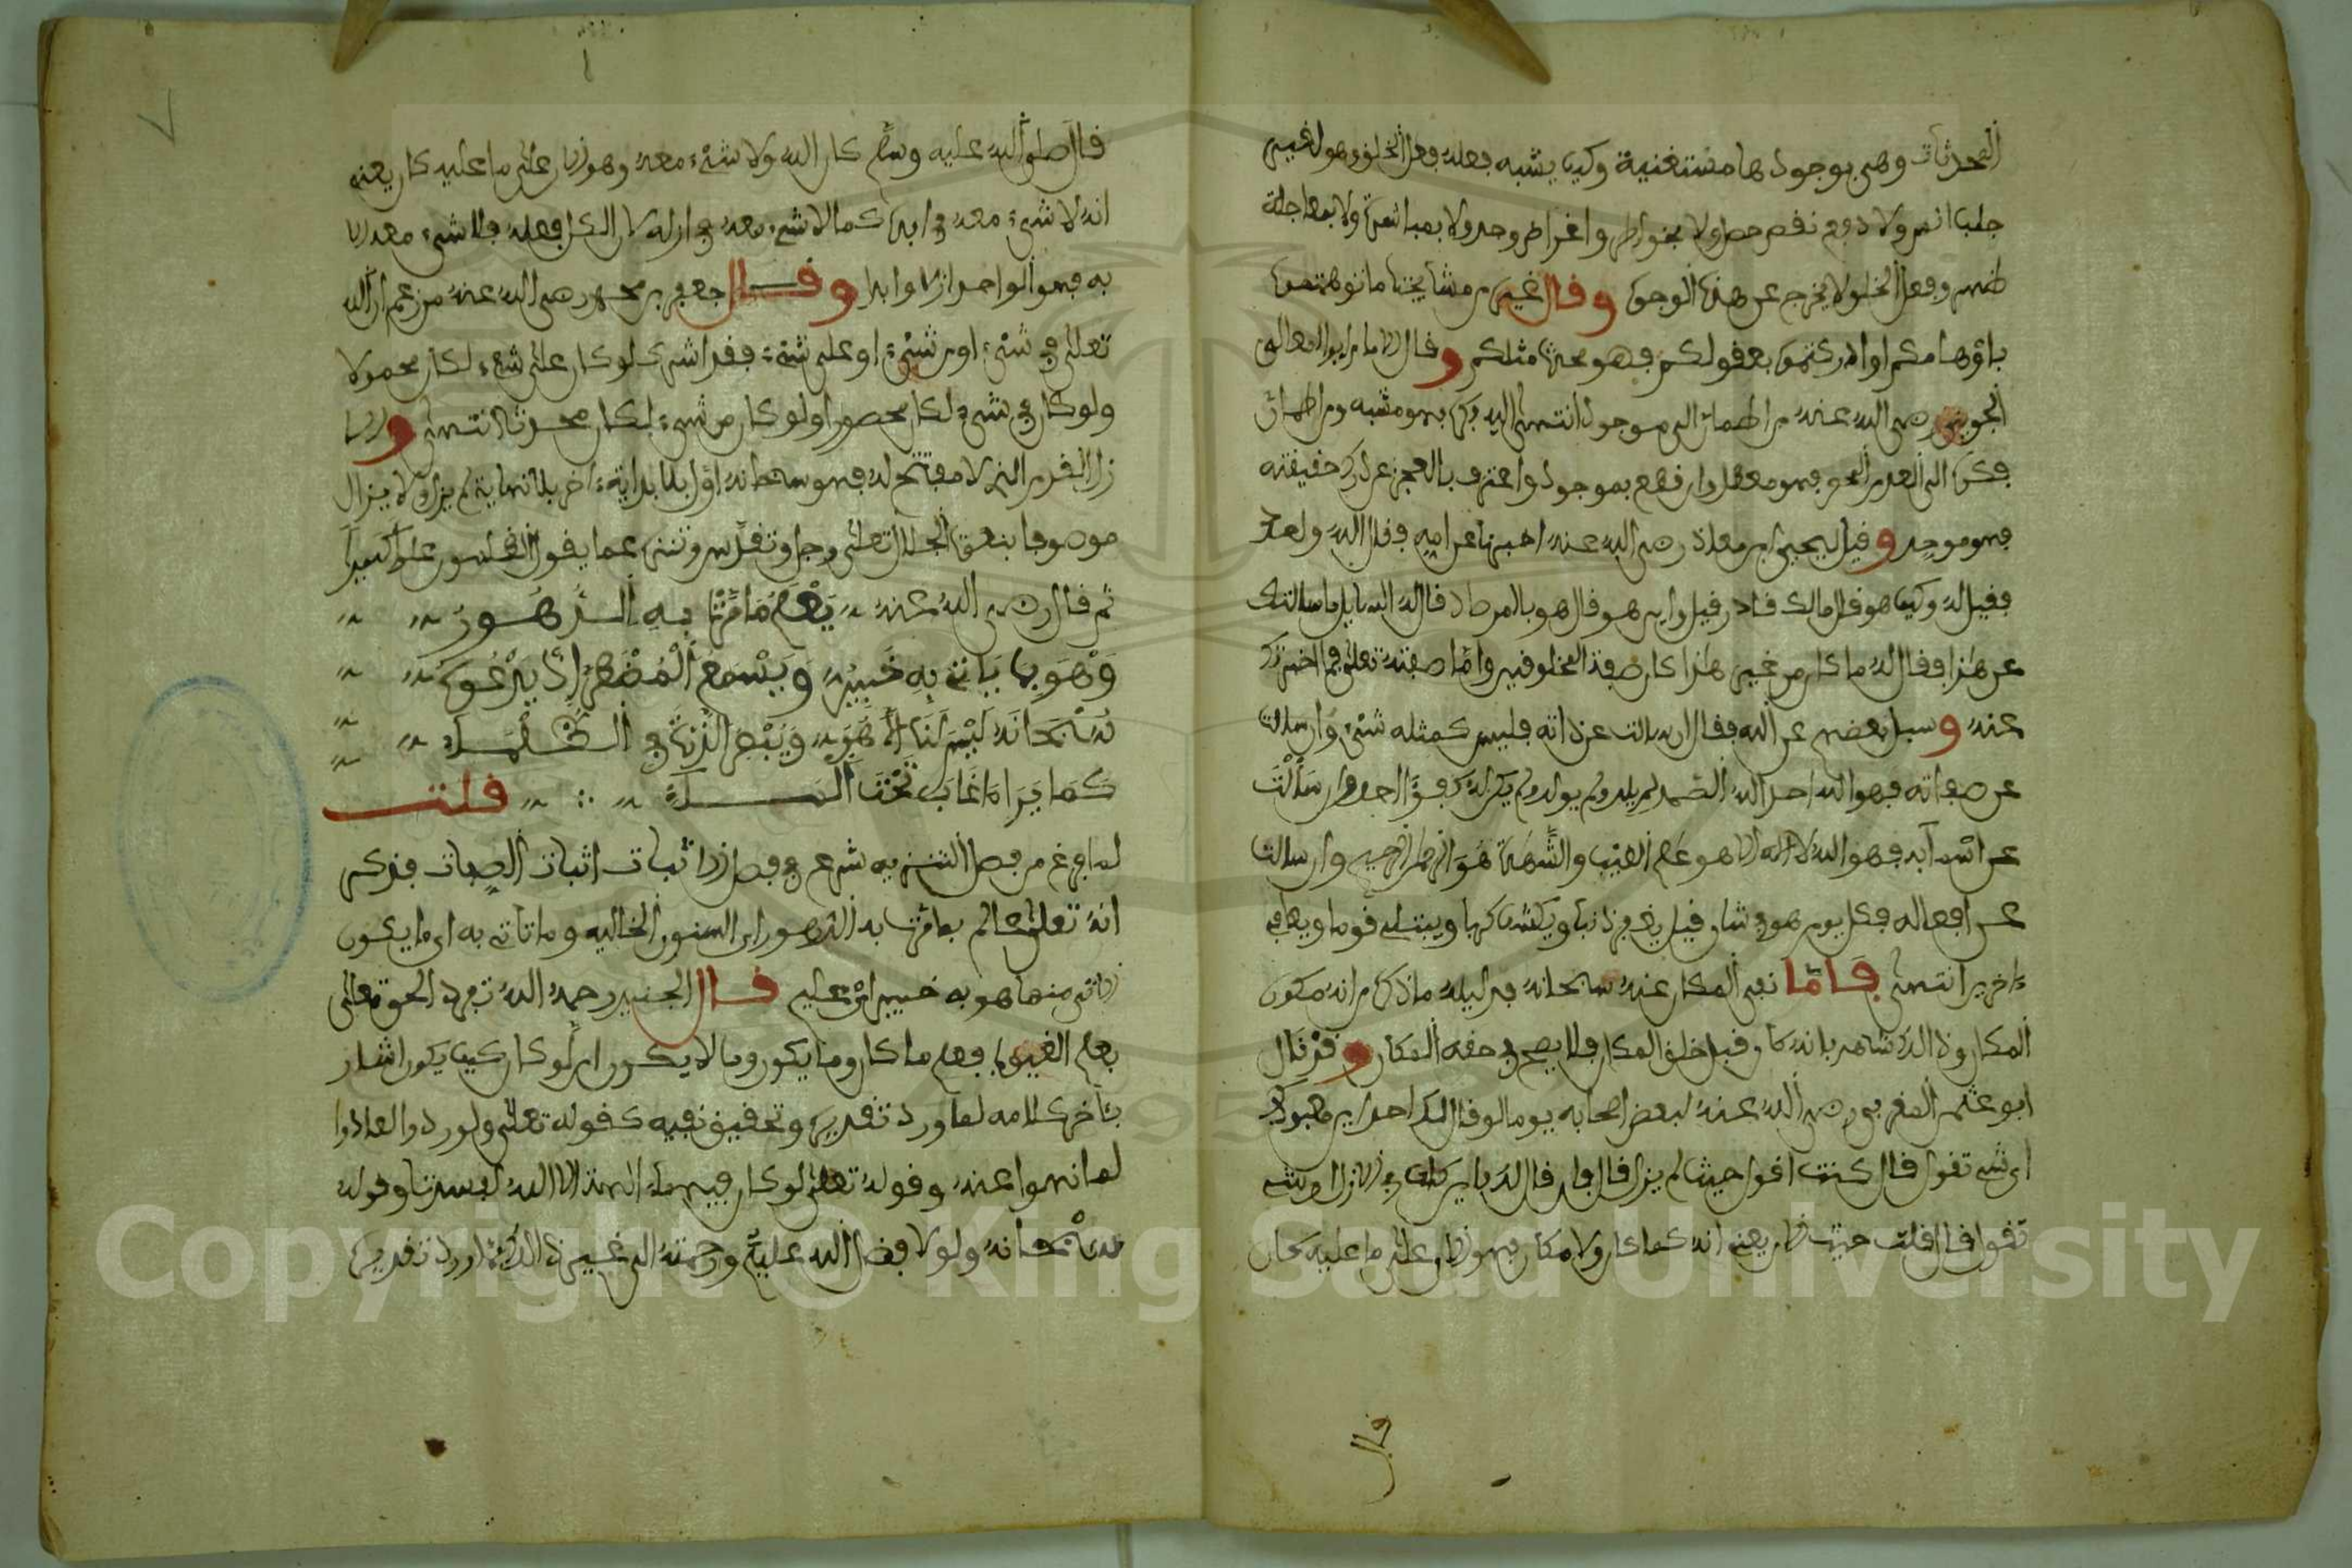 المحدثات وهى بوجودها مستغنية وكيف يشبه فعله فعل الخلق وهو لغير
جلب انس ولا دفع نقص حصل ولا بخواطر واغراض وجد ولا بمباشرة ولا بمعالجة
ظهر وفعل الخلق لا يخرج عن هذه الوجوه وقال غيره من مشايخنا ما توهمتموه
باوهامكم او ادركتموه بعقولكم فهو محدث مثلكم وقال الامام ابو المعالى
الجوينى رضى الله عنه من اطمان الى موجود انتهى اليه فكره فهو مشبه ومن اطمان
فكره الى العدم المحض فهو معطل وان قطع بموجود واعترف بالعجز عن درك حقيقته
فهو موحد وقيل ليحيى بن معاذ رضى الله عنه اخبرنا عن الله فقال الله واحد
فقيل له وكيف هو قال مالك قادر قيل واين هو قال هو بالمرصاد قال له السايل ما سالتك
عن هذا فقال له ما كان من غير هذا كان صفة المخلوقين واما صفته تعالى فما اخبرتك
عنه وسيل بعضهم عن الله فقال ان سالت عن ذاته فليس كمثله شىء وان سالت
عن صفاته فهو الله احد الله الصمد لم يلد ولم يولد ولم يكن له كفؤا احد وان سألت
عن اسمآيه فهو الله لا اله الا هو علم الغيب والشهدة هو الرحمن الرحيم وان سالت
عن افعاله فكل يوم هو فى شان قيل يغفر ذنبا ويكشف كربا ويبتلى قوما ويعافى
ءاخرين انتهى فاما نفى المكان عنه سبحانه فدليله ما ذكره من انه مكون
المكان وذالك شاهد بانه كان قبل خلق المكان فلا يصح فى حقه المكان وقد قال
ابو عثمن المغربى رضى الله عنه لبعض اصحابه يوما لو قال لك احد اين معبودك
اى شىء تقول قال كنت اقول حيث لم يزل قال فان قال لك فاين كان فى الازل اى شىء
تقول قال قلت حيث هو الان يعنى انه كما كان ولا مكان فهو الان على ما عليه كان
قال
٧
قال صلى الله عليه وسلم كان الله ولا شىء معه وهو الان على ما عليه كان يعنى
انه لا شىء معه فى ابده كما لا شىء معه فى ازله لان الكل فعله فلا شىء معه الا
به فهو الواحد ازلا وابدا وقال جعفر بن محمد رضى الله عنه من زعم ان الله
تعالى فى شىء او من شىء او على شىء فقد اشرك لو كان على شىء لكان محمولا
ولو كان فى شىء لكان محصورا ولو كان من شىء لكان محدثا انتهى والا
زل القدم الذى لا مفتتح له فهو سبحانه اول بلا بداية ءاخر بلا نهاية لم يزل ولا يزال
موصوفا بنعوت الجلال تعلى وجل وتقدس وتنزه عما يقول الظلمون علوا كبيرا
ثم قال رضى الله عنه يَعْلَمُ مَا مَرَّتْ بِهِ الدُّهُورُ
وَهْوَ بِمَا يَاتى بِهِ خَبِيرُ وَيَسْمَعُ الْمُضْطَرَّ إِذْ يَدْعُوهُ
سُبْحَانَهُ لَيْسَ لَنَا إِلَّا هُوَ وَيُبْصِرُ الذَّرَّةَ فى الظُّلْمَاءِ
كَمَا يَرَا مَا غَابَ تَحْتَ الْمَآءِ قلت
لما فرغ من فصل التنزيه شرع فى فصل اثبات الصفات فذكر
انه تعلى عالم بما مرت به الدهور اى السنون الخاليه وما تاتى به اى ما يكون
الاتى منها هو به خبير اى عليم قال الجنيد رحمه الله تفرد الحق تعالى
بعلم الغيوب فعلم ما كان وما يكون وما لا يكون ان لو كان كيف يكون اشار
بئاخر كلامه لما ورد تقديره وتحقيق نفيه كقوله تعلى ولو ردوا لعادوا
لما نهوا عنه وقوله تعلى لو كان فيهما ءالهة الا الله لفسدتا وقوله
سبحانه ولولا فضل الله عليكم ورحمته الى غير ذالك مما ورد تقديره